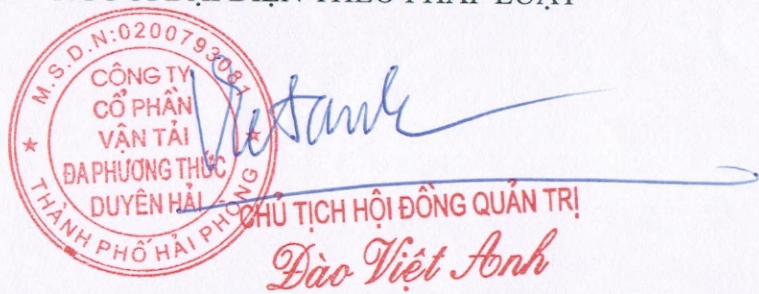 ĐẠI DIỆN THEO PHÁP LUẬT
M.S.D.N:0200793081
CÔNG TY
CỔ PHẦN
VẬN TẢI
ĐA PHƯƠNG THỨC
DUYÊN HẢI
THÀNH PHỐ HẢI PHÒNG
Vietanh
CHỦ TỊCH HỘI ĐỒNG QUẢN TRỊ
Đào Việt Anh